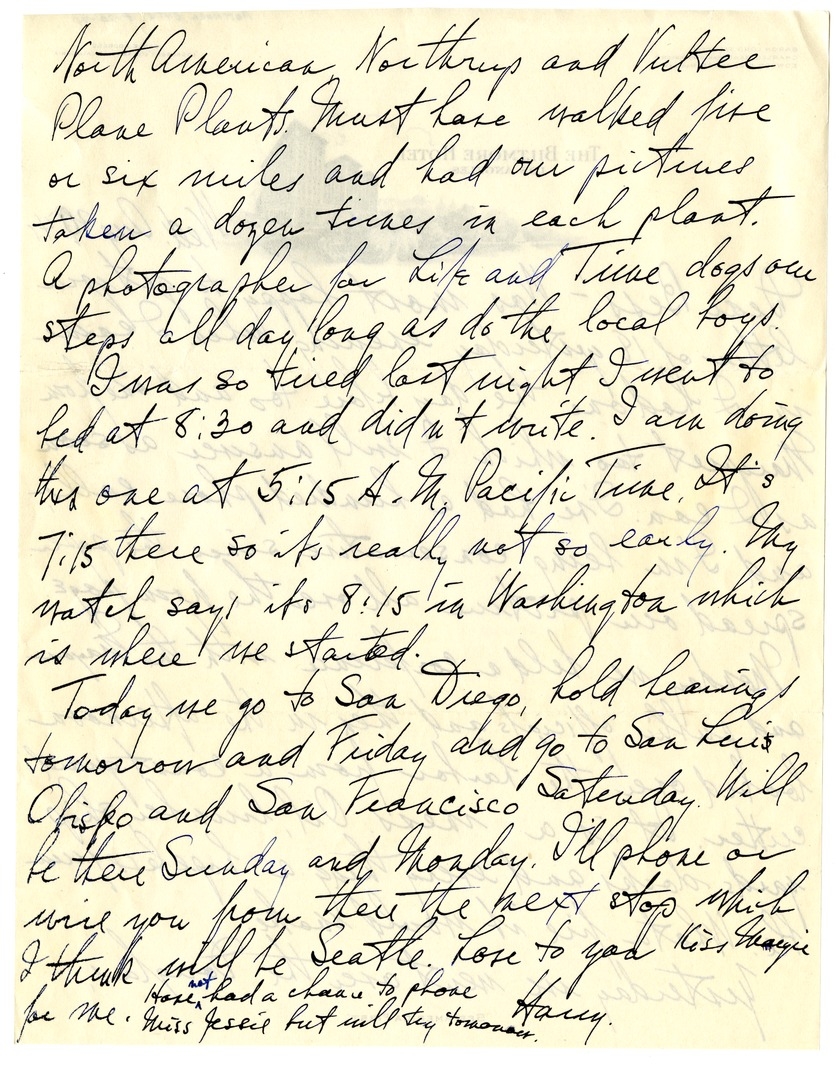 North American, Northrup and Vultee
Plane Plants. Must have walked five
or six miles and had our pictures
taken a dozen times in each plant.
A photographer for Life and Time dogs our
steps all day long as do the local boys.
I was so tired last night I went to
bed at 8:30 and didn't write. I am doing
this one at 5:15 A.M. Pacific Time. It's
7:15 there so its really not so early. My
watch says its 8:15 in Washington which
is where we started.
Today we go to San Diego, hold hearings
tomorrow and Friday and go to San Luis
Obispo and San Francisco Saturday. Will
be there Sunday and Monday. I'll phone or
wire you from there the next stop which
I think will be Seatle. Love to you Kiss Margie
for me. Harry.
Have not had a chance to phone
Miss Jessie but will try tomorrow.
THE BILTMORE HOTEL